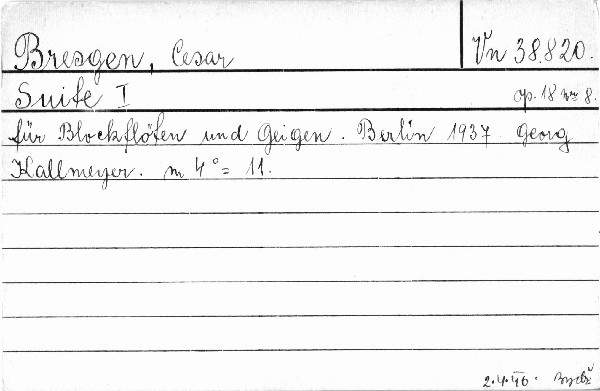 Bresgen, Cesar Vn 38.820.
Suite I op. 18 nr 8.
für Blockflöten und Geigen. Berlin 1937 Georg
Kallmeyer. m 4° = 11.
2.4.46.